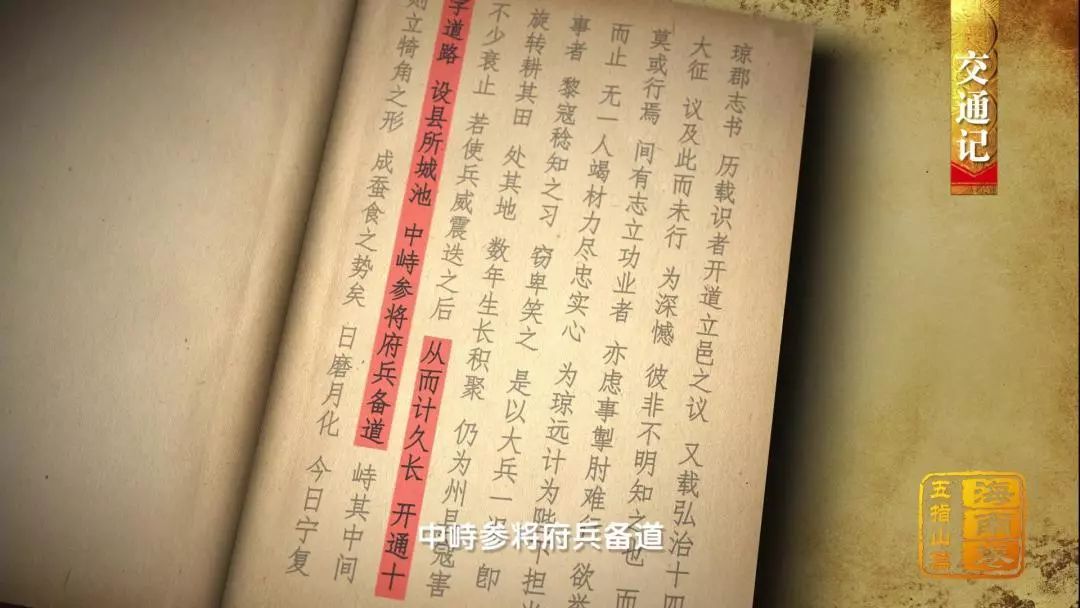 琼郡志书 历载识者开道立邑之议 又载弘治十四
大征 议及此而未行 为深憾 彼非不明知之也 而
莫或行焉 间有志立功业者 亦虑事掣肘难 欲举
而止 无一人竭材力尽忠实心 为琼远计为陛下担当
事者 黎寇稔知之习 窃卑笑之 是以大兵一 即
旋转耕其田 处其地 数年生长积聚 仍为州县寇害
不少衰止 若使兵威震迭之后 从而计久长 开通十
字道路 设县所城池 中峙参将府兵备道 峙其中间
则立犄角之形 成蚕食之势矣 日磨月化 今日宁复
交通记
海南史
五指山篇
中峙参将府兵备道